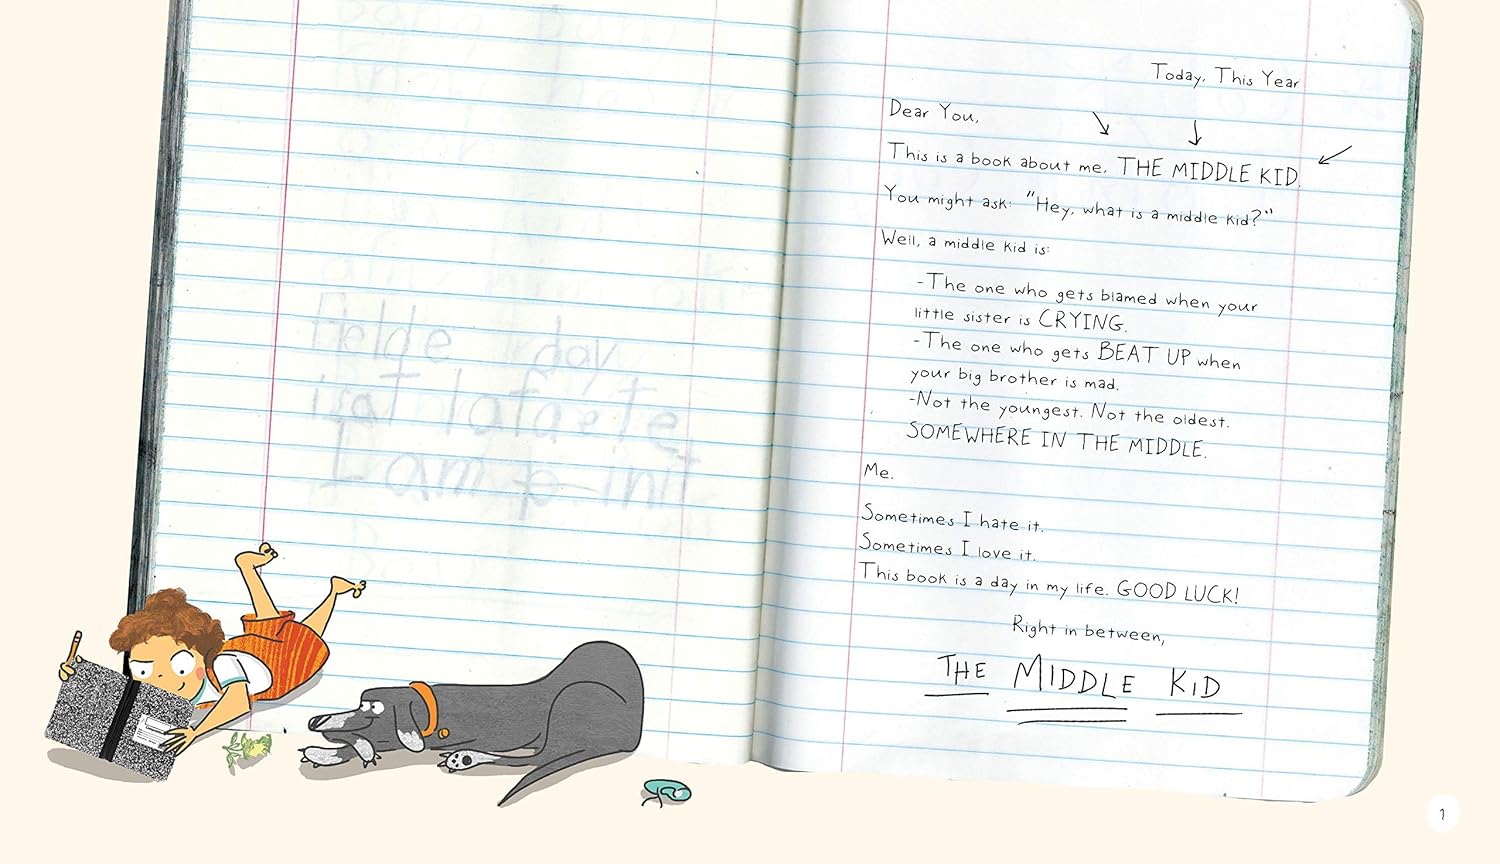 Today, This Year
Dear You,
This is a book about me, THE MIDDLE KID.
You might ask: "Hey, what is a middle kid?"
Well, a middle kid is:
-The one who gets blamed when your
little sister is CRYING.
-The one who gets BEAT UP when
your big brother is mad.
-Not the youngest. Not the oldest.
SOMEWHERE IN THE MIDDLE.
Me.
Sometimes I hate it.
Sometimes I love it.
This book is a day in my life. GOOD LUCK!
Right in between,
THE MIDDLE KID
day
I am
1